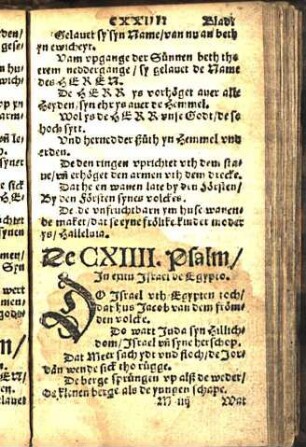 CXXVII Bladt
Gelauet sy syn Name/ van nu an beth
yn ewicheyt.
Vam vpgange der Sünnen beth ths
erem neddergange/ sy gelauet de Name
des HEREN.
De HERR ys vorhöget auer alle
Heyden/ syn ehr ys auer de Hemmel.
Wol ys de HERR vnse Godt/ de so
hoch sytt.
Vnd hernedder süth yn Hemmel vnd
erden.
De den ringen vprichtet vth dem sta-
ue/ vñ erhöget den armen vth dem drecke.
Dat he en wanen late by den Försten/
By den Försten synes volckes.
De de vnfruchtbarn ym huse wanen-
de maket/ dat se eyne frölike kinder moder
ys/ Halleluia.
De CXIIII. Psalm/
In exitu Israel de Egypto.
DO Israel vth Egypten toch/
dat hus Jacob van dem fröm-
den volcke.
Do wart Juda syn Hillich-
dom/ Israel vñ syne herschop.
Dat Meer sach ydt vnd floch/ de Jor-
dan wende sick tho rügge.
De berge sprüngen vp alse de weder/
De klenen berge als de yungen schape.
M iiij Wat